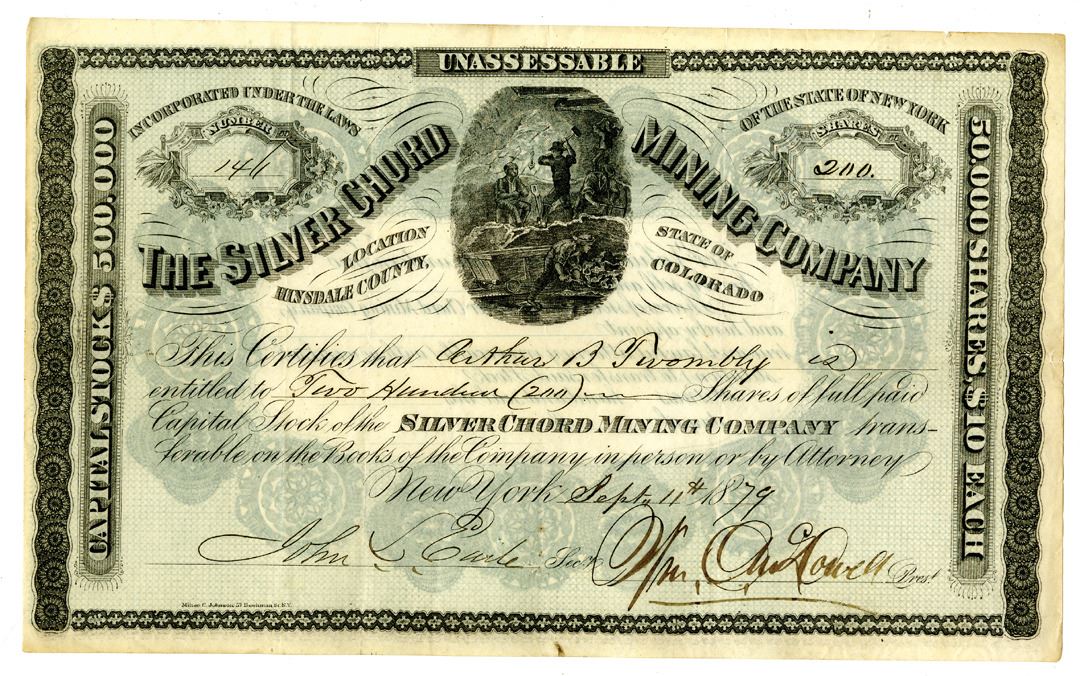 UNASSESSABLE
INCORPORATED UNDER THE LAWS
OF THE STATE OF NEW YORK
NUMBER
146
SHARES
200.
THE SILVER CHORD MINING COMPANY
LOCATION
HINSDALE COUNTY,
STATE OF
COLORADO
CAPITAL STOCK $500.000
50.000 SHARES, $10 EACH
This Certifies that Arthur B Twombly is
entitled to Two Hundred (200) Shares of full paid
Capital Stock of the SILVER CHORD MINING COMPANY trans-
ferable on the Books of the Company in person or by Attorney
New York Sept. 11th 1879
John L. Earle Secy. Wm. Pres.t
Milton C. Johnson, 37 Beekman St. N.Y.